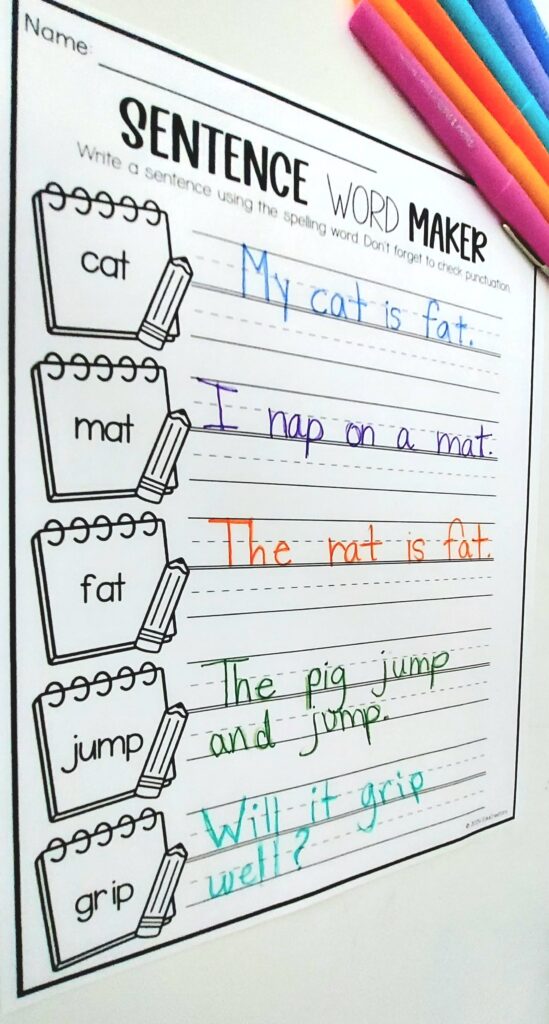 Name:
SENTENCE WORD MAKER
Write a sentence using the spelling word. Don't forget to check punctuation.
cat
My cat is fat.
mat
I nap on a mat.
fat
The rat is fat.
jump
The pig jump
and jump.
grip
Will it grip
well?